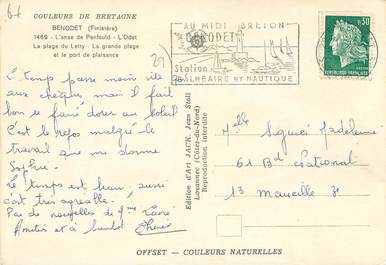 COULEURS DE BRETAGNE
BENODET (Finistère)
1469 - L'anse de Penfould - L'Odet
La plage du Letty - La grande plage
et le port de plaisance
AU MIDI BRETON
BENODET
Station
BALNÉAIRE ET NAUTIQUE
0,30
REPUBLIQUE FRANÇAISE
Le temps passe moins vite
aux chèques mais il fait
bon se faire dorer au soleil
C'est le repos malgré le
travail que me donne
Sophie.
Le temps est beau, aussi
c'est très agréable.
Pas de nouvelles de Mme
Amitiés et à bientôt
Edition d'Art JACK, Jean Stoll
Louannec (Côtes-du-Nord)
Reproduction interdite
Melle Madeleine
61 Bd National
13 Marseille 3e
OFFSET - COULEURS NATURELLES